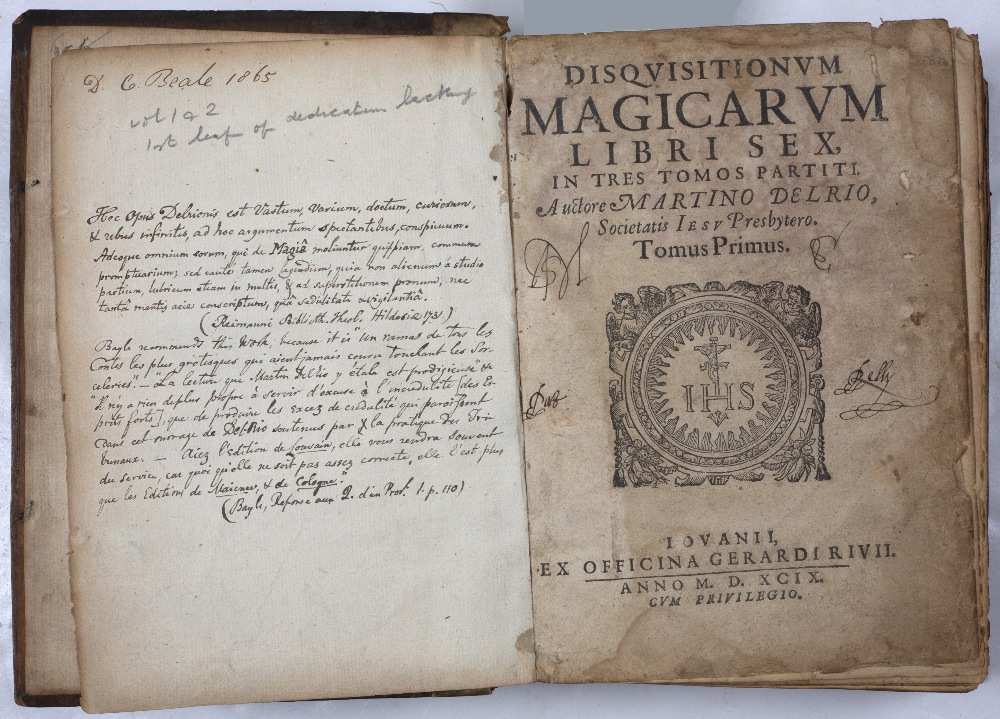 D. C. Beale 1865
vol 1 & 2
1st leaf of dedication lacking
Hoc Opus Delrionis est Vastum, varium, doctum, curiosum,
& rebus infinitis, ad hoc argumentum spectantibus, conspicuum.
Adeoque omnium eorum, qui de Magiâ moliuntur quippiam, commune
promptuarium; sed cautè tamen legendum, quia non alienum à studio
partium, lubricum etiam in multis, & ad superstitionem pronum, nec
tantâ mentis acie conscriptum, quâ sedulitate & vigilantiâ.
(Reimanni Biblioth. Theol. Hildesiæ 1731.)
Bayle recommends this Work, because it is "un ramas de tous les
Contes les plus grotesques qui aient jamais couru touchant les Sor-
celeries". — "La lecture que Martin Del Rio y étale est prodigieuse" &
"Il n'y a rien de plus propre à servir d'excuse à l'incredulité [des Es-
prits forts], que de produire les excez de credulité qui paroissent
dans cet ouvrage de Del-Rio soutenus par la pratique des Tri
bunaux. — Aiez l'édition de Louvain, elle vous rendra souvent
du service, car quoi qu'elle ne soit pas assez correcte, elle l'est plus
que les Editions de Maience, & de Cologne."
(Bayle, Reponse aux Q. d'un Prov. 1. p. 110)
DISQVISITIONVM
MAGICARVM
LIBRI SEX,
IN TRES TOMOS PARTITI.
Auctore MARTINO DELRIO,
Societatis IESV Presbytero.
Tomus Primus.
IHS
LOVANII,
EX OFFICINA GERARDI RIVII.
ANNO M. D. XCIX.
CVM PRIVILEGIO.